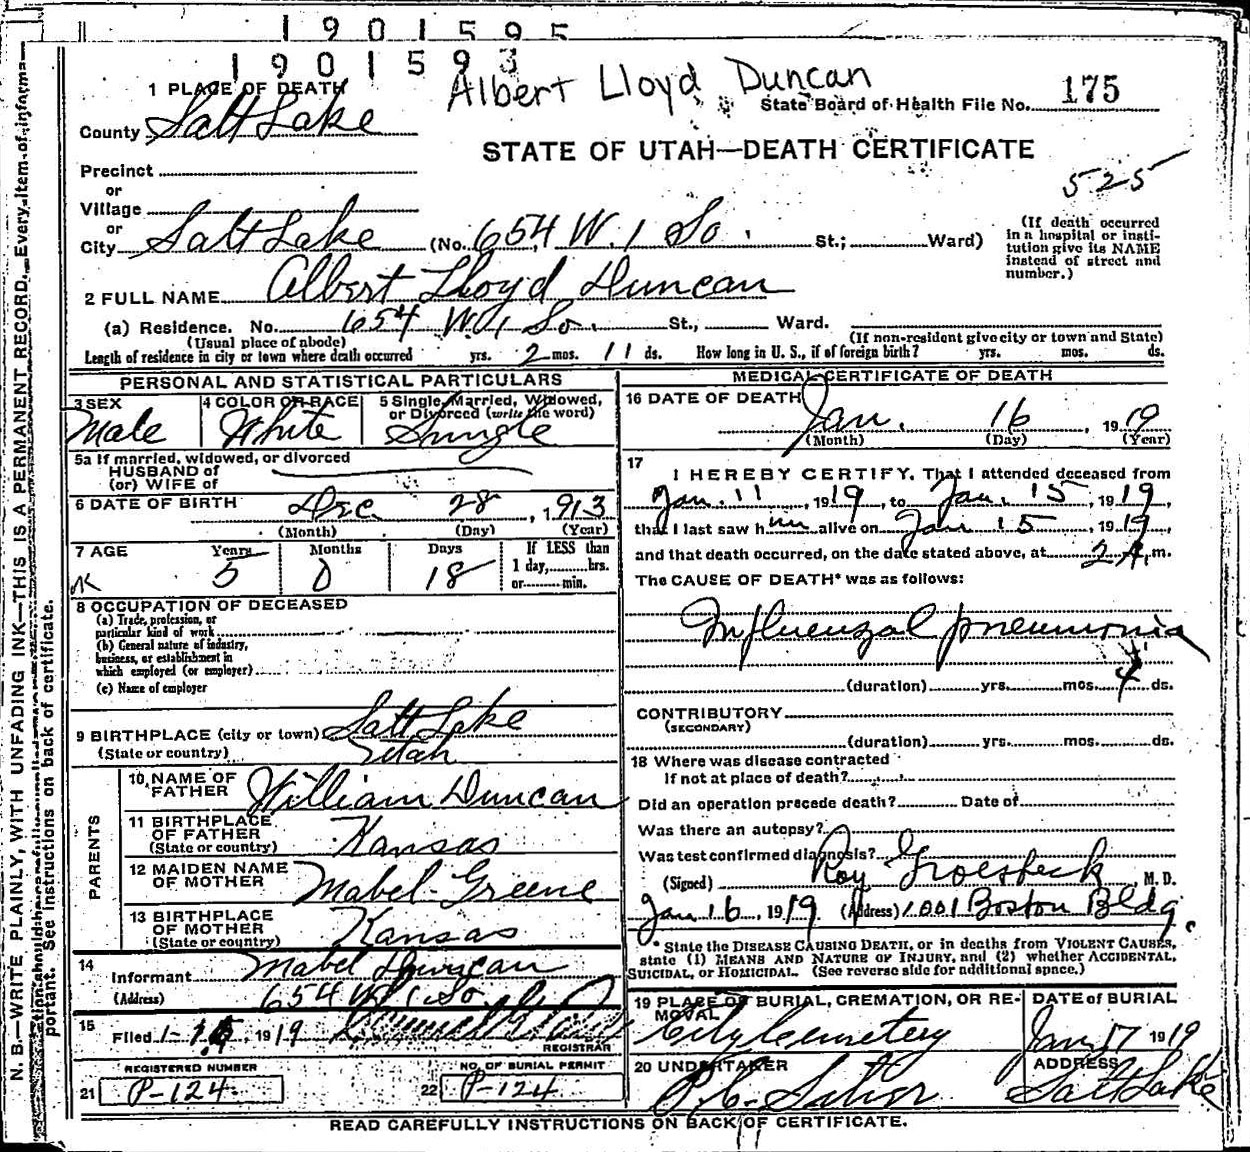 1901595
1901593
Albert Lloyd Duncan
1 PLACE OF DEATH
State Board of Health File No. 175
County Salt Lake
STATE OF UTAH—DEATH CERTIFICATE
Precinct
or
525
Village
or
City Salt Lake (No. 654 W. 1 So. St.; Ward)
(If death occurred in a hospital or institution give its NAME instead of street and number.)
2 FULL NAME Albert Lloyd Duncan
(a) Residence. No. 654 W. 1 So. St., Ward.
(Usual place of abode) (If non-resident give city or town and State)
Length of residence in city or town where death occurred yrs. 2 mos. 11 ds. How long in U. S., if of foreign birth? yrs. mos. ds.
PERSONAL AND STATISTICAL PARTICULARS
3 SEX 4 COLOR OR RACE 5 Single, Married, Widowed, or Divorced (write the word)
Male White Single
5a If married, widowed, or divorced
HUSBAND of
(or) WIFE of
6 DATE OF BIRTH Dec. 28, 1913
(Month) (Day) (Year)
7 AGE Years Months Days If LESS than
5 0 18 1 day, hrs.
or min.
8 OCCUPATION OF DECEASED
(a) Trade, profession, or
particular kind of work
(b) General nature of industry,
business, or establishment in
which employed (or employer)
(c) Name of employer
9 BIRTHPLACE (city or town) Salt Lake
(State or country) Utah
PARENTS
10 NAME OF FATHER William Duncan
11 BIRTHPLACE OF FATHER
(State or country) Kansas
12 MAIDEN NAME OF MOTHER Mabel Greene
13 BIRTHPLACE OF MOTHER
(State or country) Kansas
14 Informant Mabel Duncan
(Address) 654 W. 1 So
15 Filed 1- 1919
REGISTRAR
REGISTERED NUMBER NO. OF BURIAL PERMIT
21 P-124 22 P-124
MEDICAL CERTIFICATE OF DEATH
16 DATE OF DEATH
Jan. 16, 1919
(Month) (Day) (Year)
17 I HEREBY CERTIFY, That I attended deceased from
Jan. 11, 1919, to Jan. 15, 1919,
that I last saw him alive on Jan 15, 1919,
and that death occurred, on the date stated above, at 2 A. m.
The CAUSE OF DEATH* was as follows:
Influenzal pneumonia
(duration) yrs. mos. 4 ds.
CONTRIBUTORY
(SECONDARY)
(duration) yrs. mos. ds.
18 Where was disease contracted
If not at place of death?
Did an operation precede death? Date of
Was there an autopsy?
Was test confirmed diagnosis?
(Signed) Roy Groesbeck M. D.
Jan 16, 1919 (Address) 1001 Boston Bldg.
* State the DISEASE CAUSING DEATH, or in deaths from VIOLENT CAUSES,
state (1) MEANS AND NATURE OF INJURY, and (2) whether ACCIDENTAL,
SUICIDAL, or HOMICIDAL. (See reverse side for additional space.)
19 PLACE OF BURIAL, CREMATION, OR REMOVAL DATE of BURIAL
City Cemetery Jan 17 1919
20 UNDERTAKER ADDRESS
Salt Lake
READ CAREFULLY INSTRUCTIONS ON BACK OF CERTIFICATE.
N. B.—WRITE PLAINLY, WITH UNFADING INK—THIS IS A PERMANENT RECORD. Every item of informa-
portant. See instructions on back of certificate.